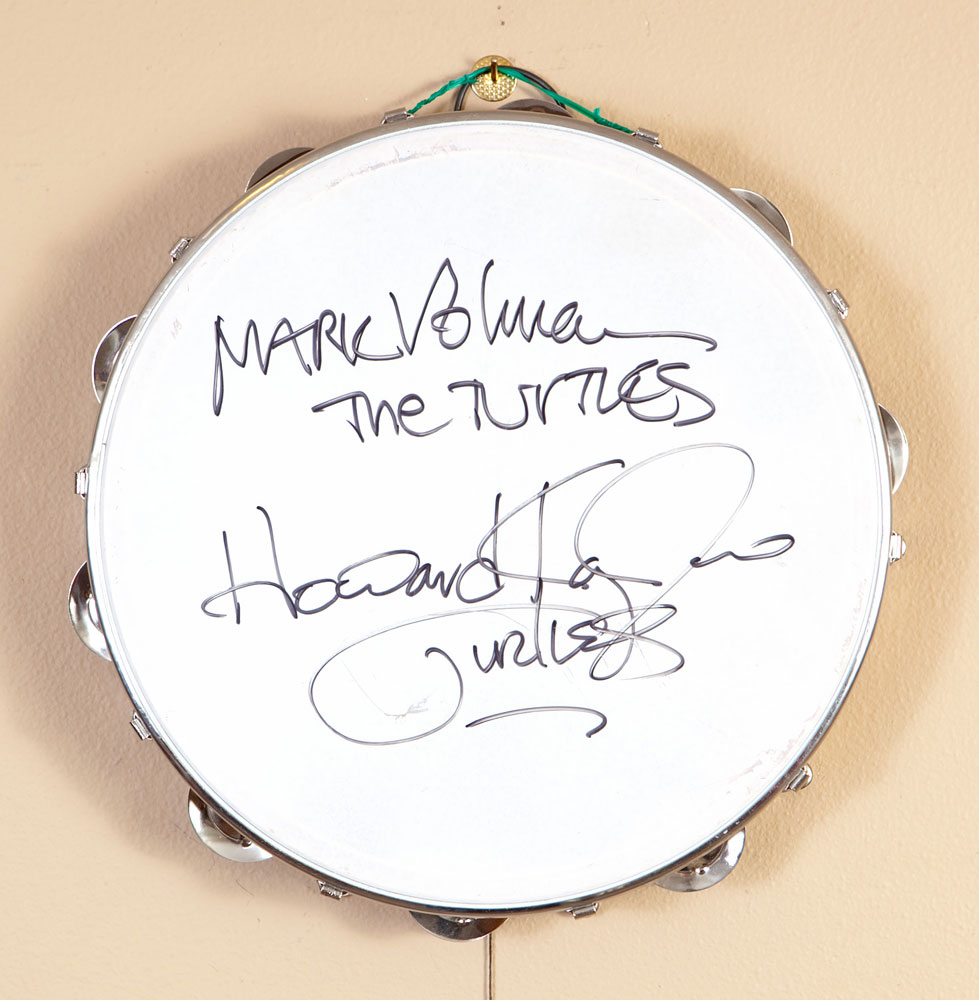 MARK Volman
The TURTLES
Howard Kaylan
Turtles